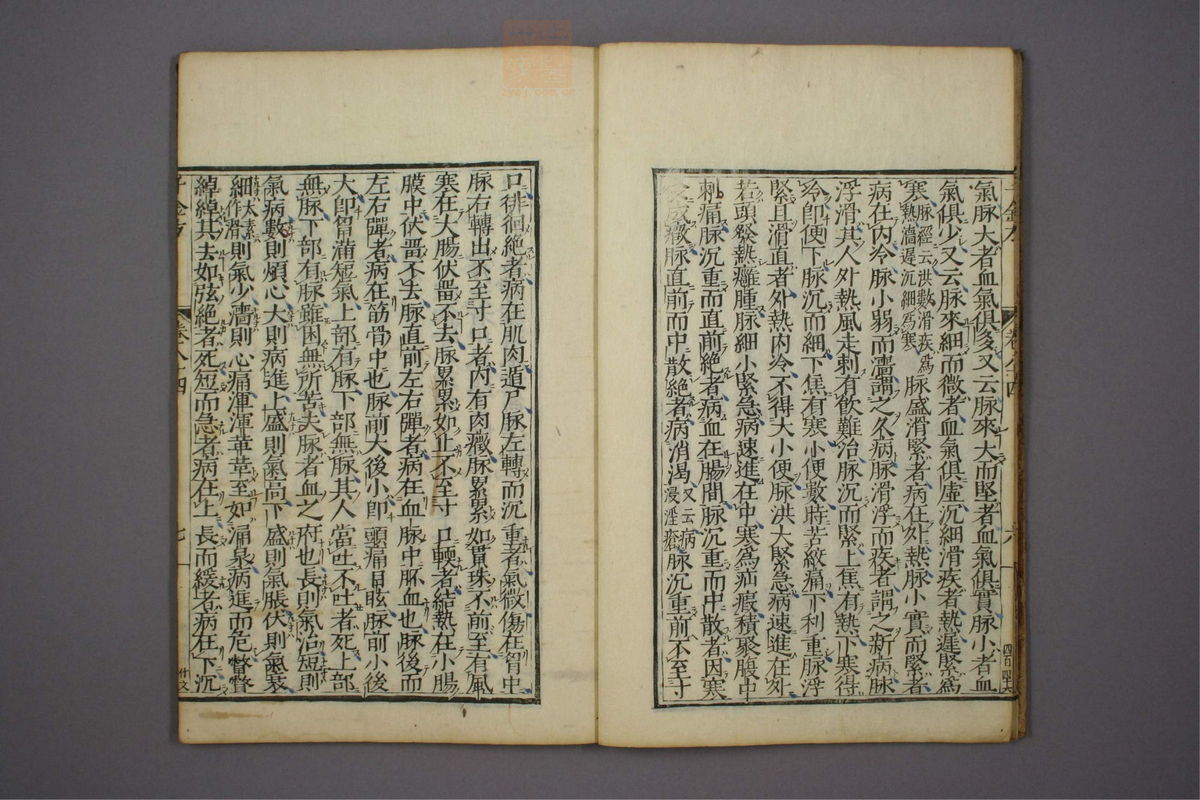 氣脉大者血氣俱多又云脉來大而堅者血氣俱實脉小者血
氣俱少又云脉來細而微者血氣俱虛沉細滑疾者熱遲緊爲
寒脉經云洪數滑疾爲熱濇遲沉細爲寒脉盛滑緊者病在外熱脉小實而緊者
病在内冷脉小弱而濇謂之久病脉滑浮而疾者謂之新病脉
浮滑其人外熱風走刺有飲難治脉沉而緊上焦有熱下寒得
冷即便下脉沉而細下焦有寒小便數時苦絞痛下利重脉浮
緊且滑直者外熱内冷不得大小便脉洪大緊急病速進在外
若頭發熱癰腫脉細小緊急病速進在中寒爲疝瘕積聚腹中
刺痛脉沉重而直前絶者病血在腸間脉沉重而中散者因寒
食成癥脉直前而中散絶者病消渴又云病浸淫瘡脉沉重前不至寸
口徘徊絶者病在肌肉遁尸脉左轉而沉重者氣微傷在胷中
脉右轉出不至寸口者内有肉癥脉累累如貫珠不前至有風
寒在大腸伏畱不去脉累累如止不至寸口軟者結熱在小腸
膜中伏畱不去脉直前左右彈者病在血脉中䘐血也脉後而
左右彈者病在筋骨中也脉前大後小即頭痛目眩脉前小後
大即胷滿短氣上部有脉下部無脉其人當吐不吐者死上部
無脉下部有脉雖困無所苦夫脉者血之府也長則氣治短則
氣病數則煩心大則病進上盛則氣高下盛則氣脹伏則氣衰
細太素作滑則氣少濇則心痛渾渾革革至如涌泉病進而危弊弊
綽綽其去如弦絶者死短而急者病在上長而緩者病在下沉
千金方
卷八十四
七